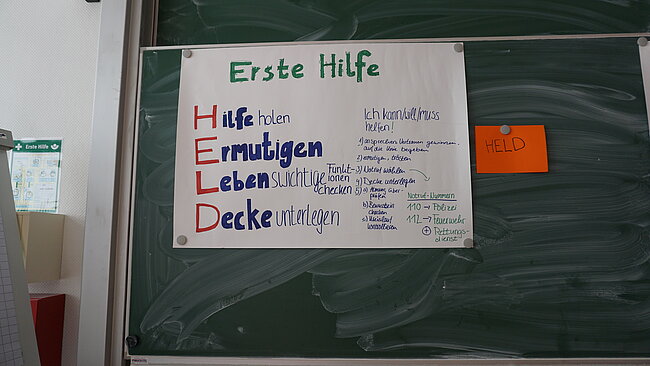 Erste Hilfe
Hilfe holen
Ermutigen
Lebenswichtige Funktionen checken
Decke unterlegen
Ich kann/will/muss
helfen!
1) ansprechen, Vertrauen gewinnen,
auf die Knie begeben
2) ermutigen, trösten
3) Notruf wählen
4) Decke unterlegen
5) a) Atmung über-
prüfen
b) Bewusstsein
checken
c) Kreislauf
kontrollieren
Notruf-Nummern
110 → Polizei
112 → Feuerwehr
+ Rettungs-
dienst
HELD
Erste Hilfe